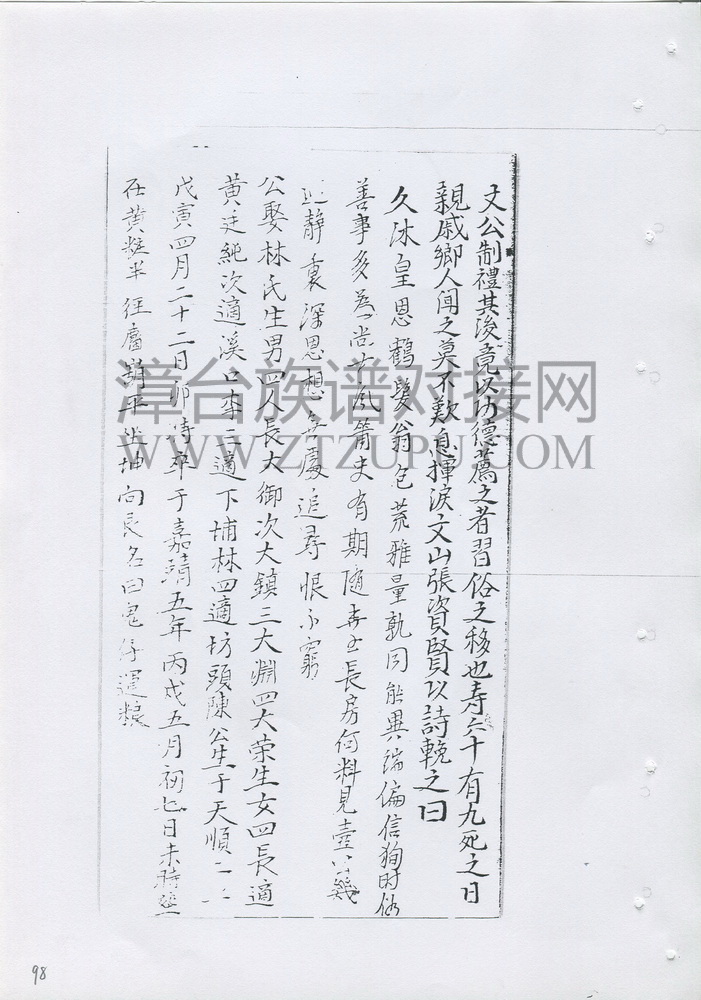 文公制禮其後竟以功德薦之者習俗之移也寿六十有九死之日
親戚鄉人闻之莫不歎息揮淚文山張資賢以詩輓之曰
久沐皇恩鶴髮翁包荒雅量孰同能異端偏信狥时俗
善事多為尚古風簫史有期随弄玉長房何料見壺公幾
迴静裏深思想無處追尋恨不窮
公娶林氏生男四人長大御次大鎮三大淵四大荣生女四長適
黄廷純次適溪口李三適下埔林四適坊頭陳公生于天順二年
戊寅四月二十二日卯時卒于嘉靖五年丙戌五月初七日未時
在黄 半徑 坤向長名曰 運粮
漳台族谱对接网
WWW.ZTZUPU.COM
98